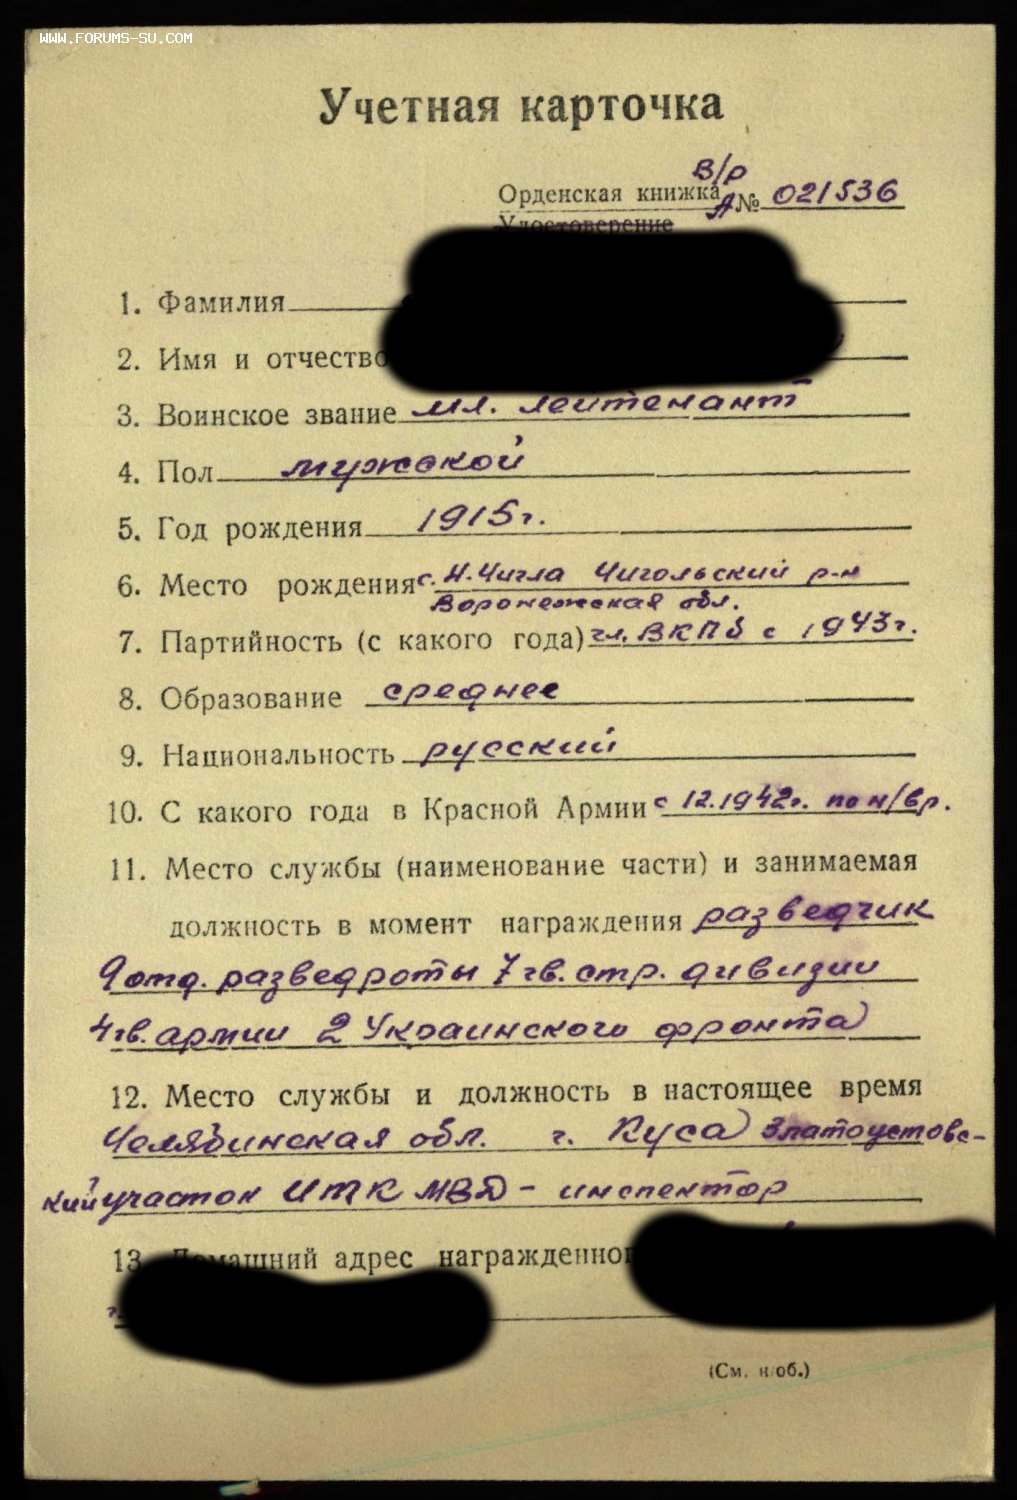 WWW.FORUMS-SU.COM
Учетная карточка
в/р
Орденская книжка А № 021536
Удостоверение
1. Фамилия
2. Имя и отчество
3. Воинское звание мл. лейтенант
4. Пол мужской
5. Год рождения 1915г.
6. Место рождения с. Н.Чигла Чигольский р-н
Воронежская обл.
7. Партийность (с какого года) чл. ВКПб с 1943г.
8. Образование среднее
9. Национальность русский
10. С какого года в Красной Армии с 12.1942г. по н/вр.
11. Место службы (наименование части) и занимаемая
должность в момент награждения разведчик
9 отд. разведроты 7 гв. стр. дивизии
4 гв. армии 2 Украинского фронта
12. Место службы и должность в настоящее время
Челябинская обл. г. Куса Златоустовс-
кий участок ИТК МВД - инспектор
13. Домашний адрес
(См. н/об.)